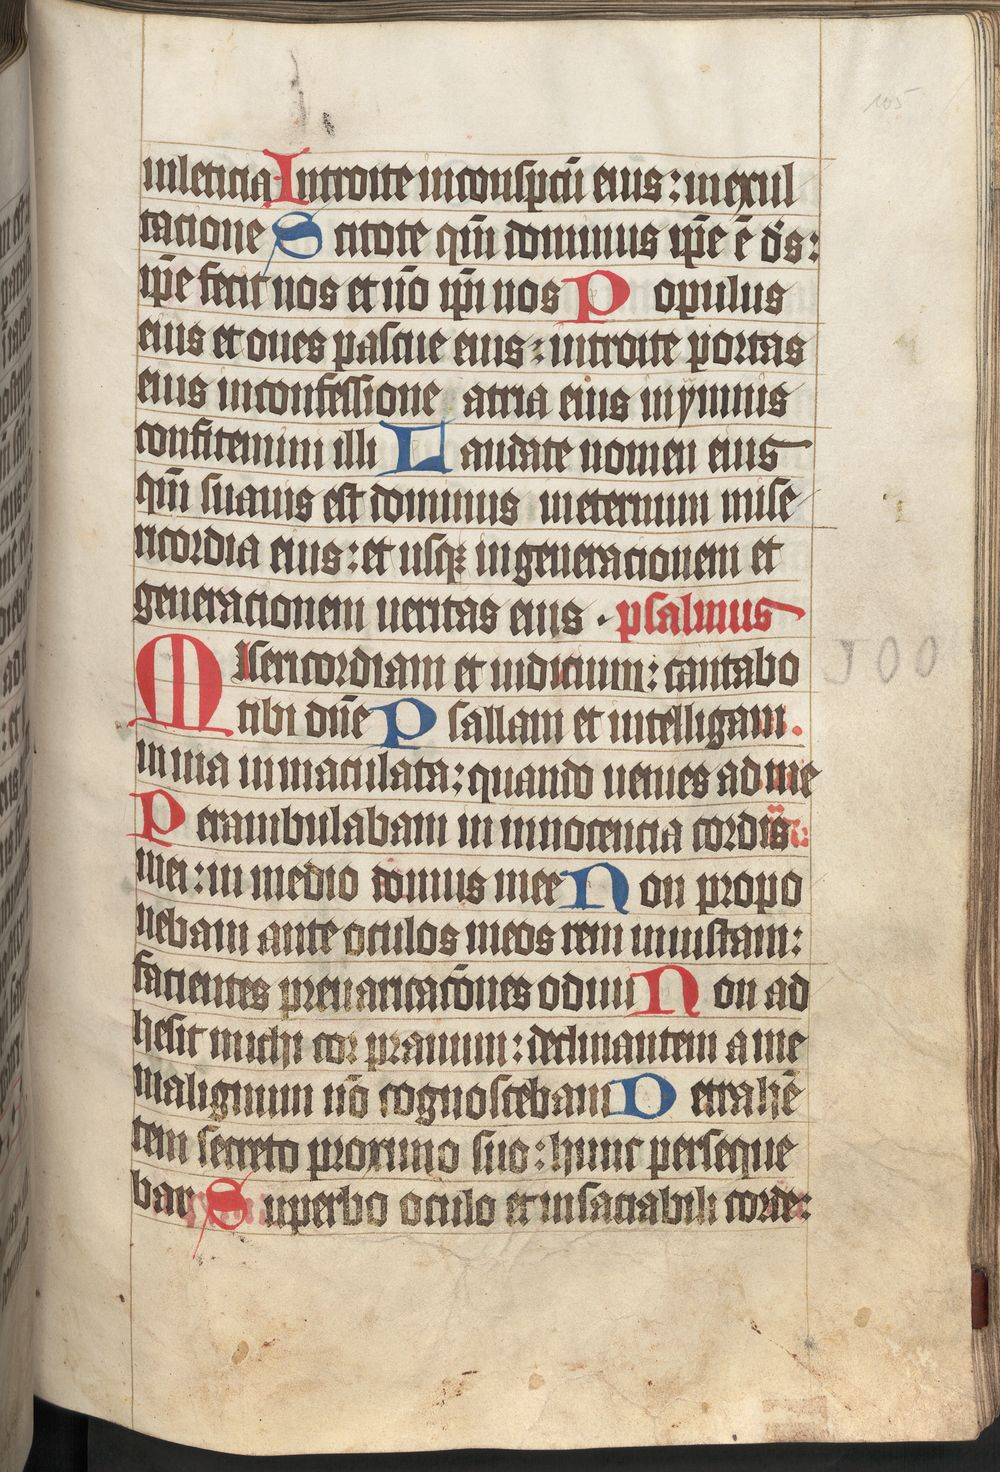 105
inleticia Introite inconspcũ eius: inexul
tacione Scitote qm̃ dominus ip̃e ē d̃s:
ip̃e fecit nos et nō ip̃i nos Populus
eius et oues pascue eius: introite portas
eius inconfessione atria eius inymnis
confitemini illi Laudate nomen eius
qm̃ suauis est dominus ineternum mise
ricordia eius: et usq; ingeneracionem et
generacionem ueritas eius . psalmus
Misericordiam et iudicium: cantabo
100
tibi dñe Psallam et intelligam
in uia inmaculata: quando uenies ad me
Perambulabam in innocencia cordis
mei: in medio domus mee Non propo
nebam ante oculos meos rem iniustam:
facientes preuaricac̃ones odiui Non ad
hesit michi cor prauum: declinantem a me
malignum nō cognoscebam Detrahē
tem secreto proximo suo: hunc perseque
bar Superbo oculo et insaciabili corde: